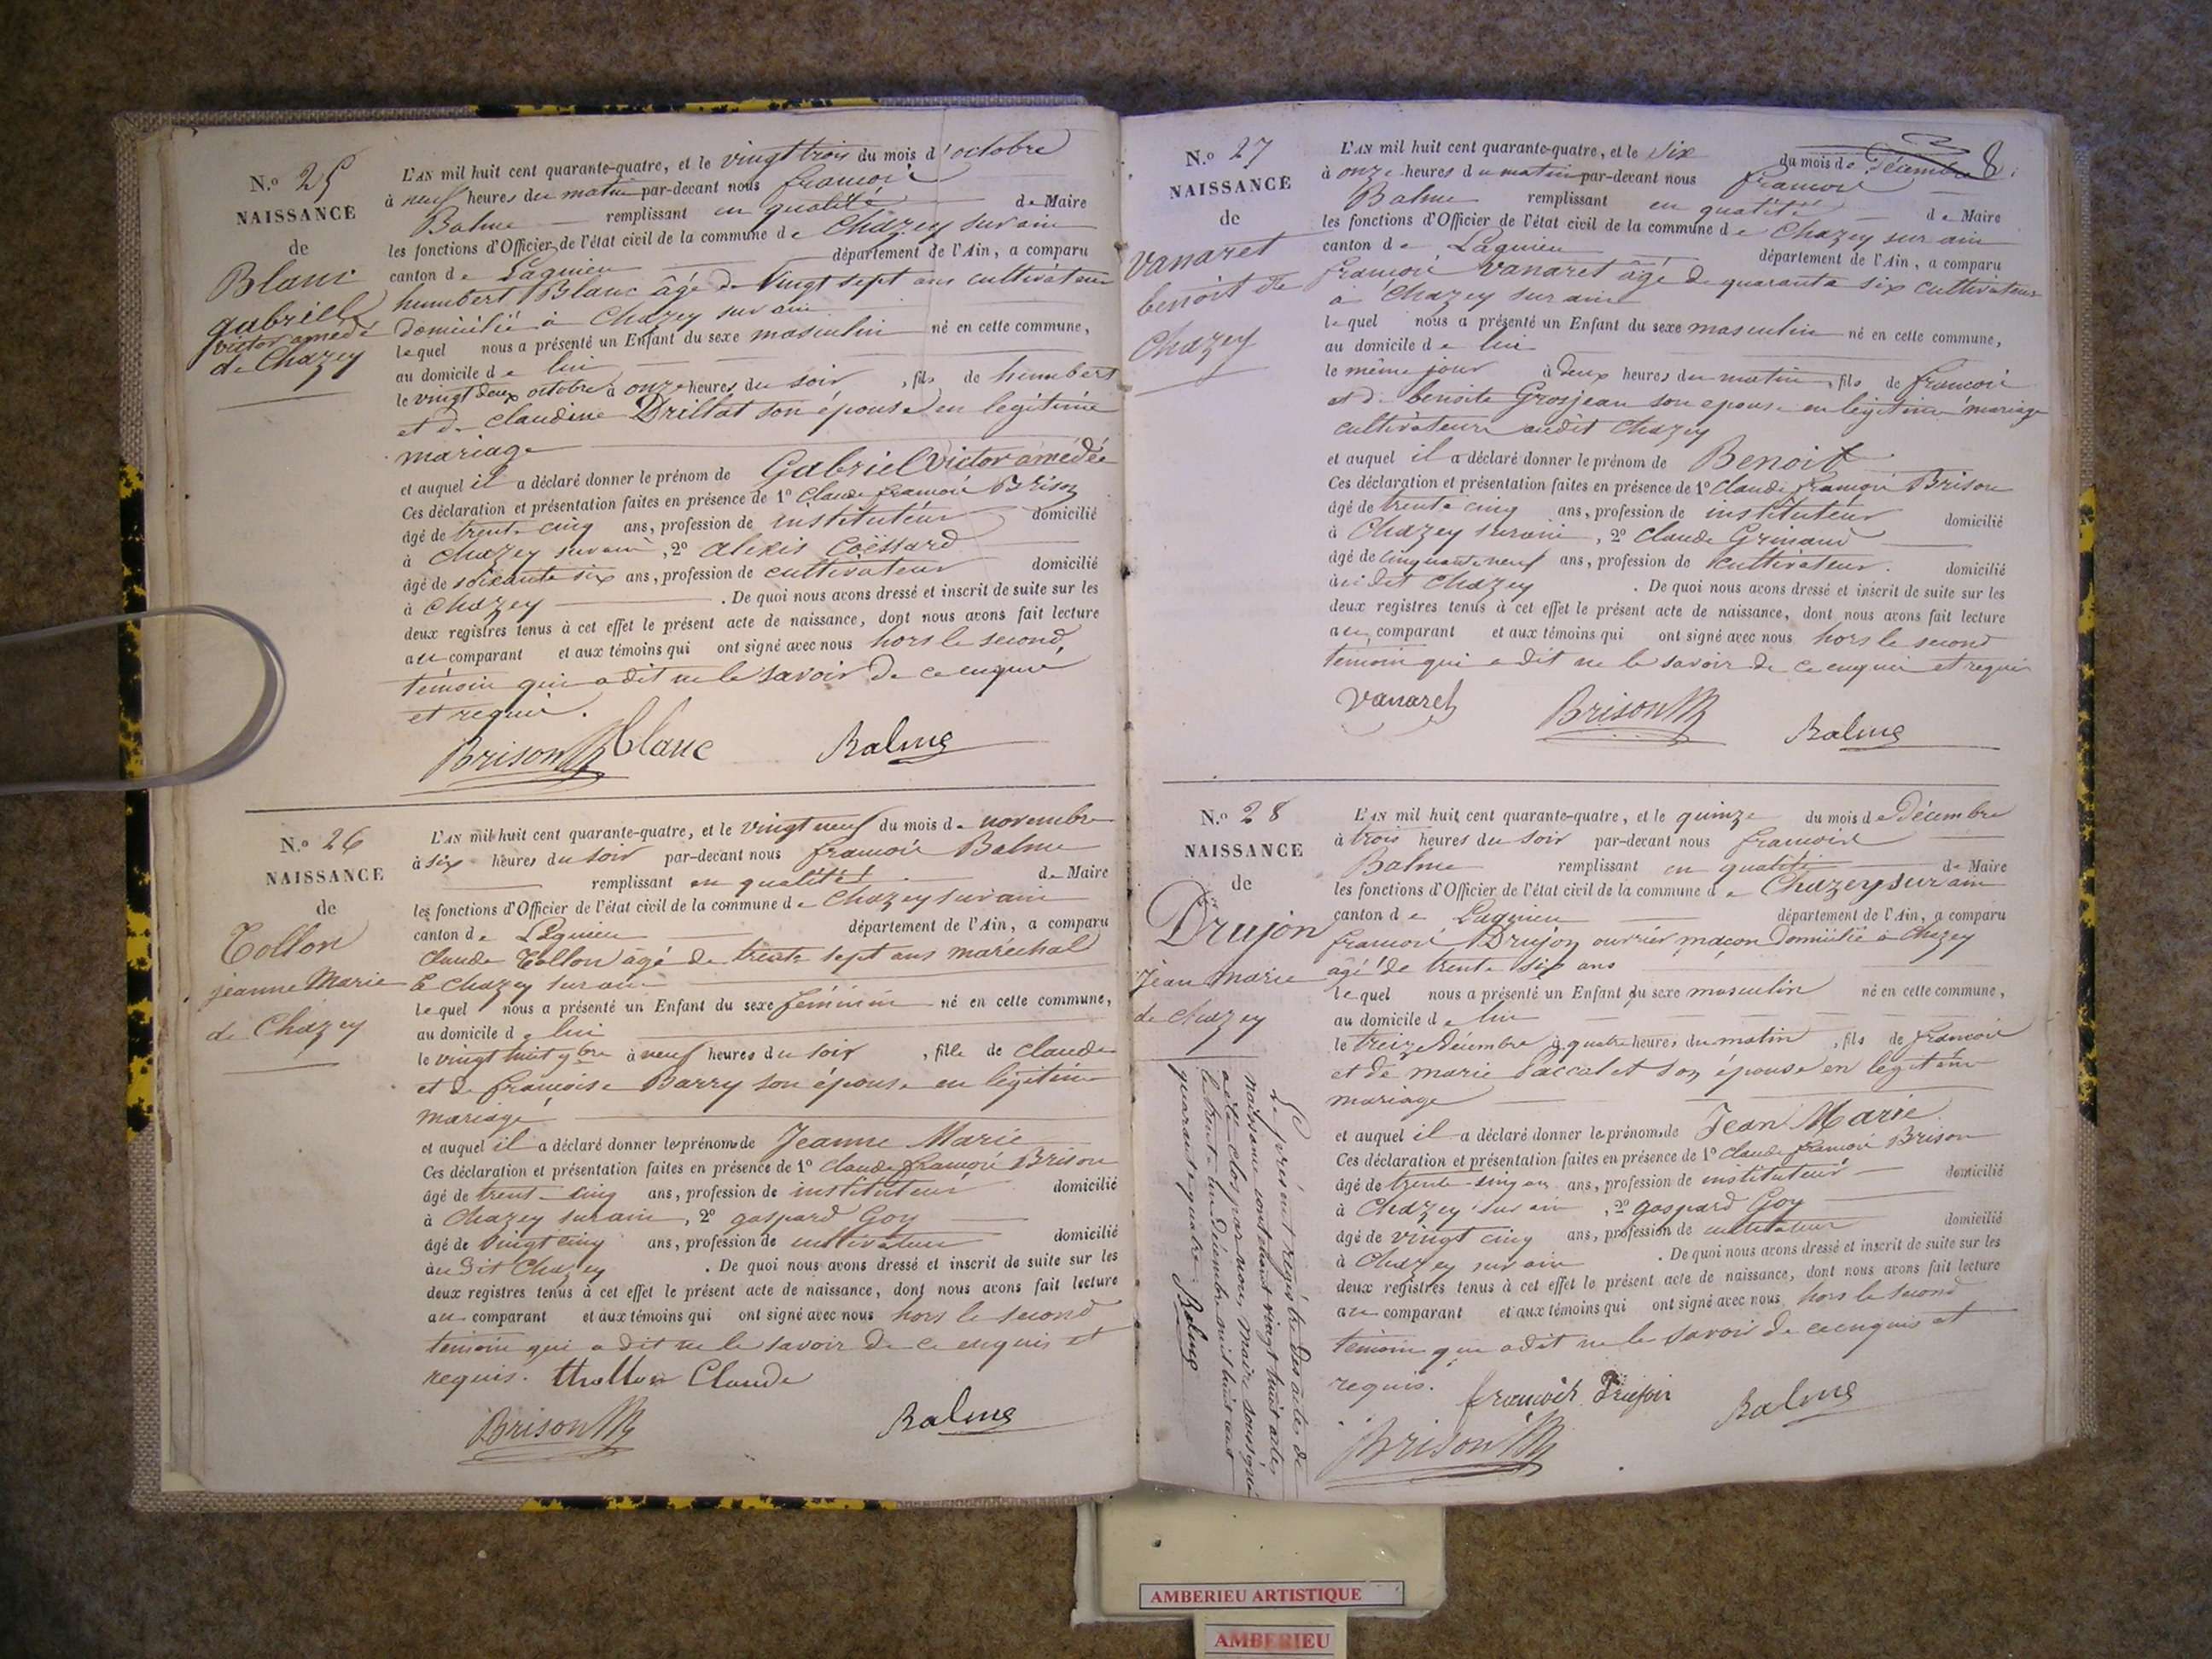 N.º 25
NAISSANCE
de
Blanc
gabriel
victor amédé
de Chazey
L'AN mil huit cent quarante-quatre, et le vingt trois du mois d'octobre
à neuf heures du matin par-devant nous françois
Balme remplissant en qualité de Maire
les fonctions d'Officier de l'état civil de la commune de Chazey sur ain
canton de Lagnieu département de l'Ain, a comparu
humbert Blanc âgé de vingt sept ans cultivateur
domicilié à Chazey sur ain
lequel nous a présenté un Enfant du sexe masculin né en cette commune,
au domicile de lui
le vingt deux octobre à onze heures du soir, fils de humbert
et de claudine Drillat son épouse en legitime
mariage
et auquel il a déclaré donner le prénom de Gabriel Victor amédée
Ces déclaration et présentation faites en présence de 1º Claude françois Brison
âgé de trente cinq ans, profession de instituteur domicilié
à Chazey sur ain, 2º alexis Coëssard
âgé de soixante six ans, profession de cultivateur domicilié
à Chazey. De quoi nous avons dressé et inscrit de suite sur les
deux registres tenus à cet effet le présent acte de naissance, dont nous avons fait lecture
au comparant et aux témoins qui ont signé avec nous hors le second
témoin qui a dit ne le savoir de ce enquis
et requis.
Brison Blanc Balme
N.º 26
NAISSANCE
de
Tollon
jeanne Marie
de Chazey
L'AN mil huit cent quarante-quatre, et le vingt neuf du mois de novembre
à six heures du soir par-devant nous françois Balme
remplissant en qualité de Maire
les fonctions d'Officier de l'état civil de la commune de Chazey sur ain
canton de Lagnieu département de l'Ain, a comparu
Claude Tollon âgé de trente sept ans maréchal
à Chazey sur ain
lequel nous a présenté un Enfant du sexe féminin né en cette commune,
au domicile de lui
le vingt huit 9bre à neuf heures du soir, fille de Claude
et de françoise Barry son épouse en légitime
mariage
et auquel il a déclaré donner les prénoms de Jeanne Marie
Ces déclaration et présentation faites en présence de 1º Claude françois Brison
âgé de trente cinq ans, profession de instituteur domicilié
à Chazey sur ain, 2º gaspard Goy
âgé de vingt cinq ans, profession de cultivateur domicilié
au dit Chazey. De quoi nous avons dressé et inscrit de suite sur les
deux registres tenus à cet effet le présent acte de naissance, dont nous avons fait lecture
au comparant et aux témoins qui ont signé avec nous hors le second
témoin qui a dit ne le savoir de ce enquis et
requis. thollon Claude
Brison Balme
8
N.º 27
NAISSANCE
de
Vanaret
benoit de
Chazey
L'AN mil huit cent quarante-quatre, et le six du mois de Décembre
à onze heures du matin par-devant nous françois
Balme remplissant en qualité de Maire
les fonctions d'Officier de l'état civil de la commune de Chazey sur ain
canton de Lagnieu département de l'Ain, a comparu
françois Vanaret âgé de quarante six cultivateur
à Chazey sur ain
lequel nous a présenté un Enfant du sexe masculin né en cette commune,
au domicile de lui
le même jour à deux heures du matin, fils de françois
et de benoite Grosjean son epouse en légitime mariage
cultivateurs audit Chazey
et auquel il a déclaré donner le prénom de Benoit
Ces déclaration et présentation faites en présence de 1º Claude françois Brison
âgé de trente cinq ans, profession de instituteur domicilié
à Chazey sur ain, 2º Claude Grinand
âgé de cinquante neuf ans, profession de cultivateur. domicilié
au dit Chazey. De quoi nous avons dressé et inscrit de suite sur les
deux registres tenus à cet effet le présent acte de naissance, dont nous avons fait lecture
au comparant et aux témoins qui ont signé avec nous hors le second
témoin qui a dit ne le savoir de ce enquis et requis
Vanaret Brison Balme
N.º 28
NAISSANCE
de
Drujon
Jean Marie
de Chazey
L'AN mil huit cent quarante-quatre, et le quinze du mois de Décembre
à trois heures du soir par-devant nous françois
Balme remplissant en qualité de Maire
les fonctions d'Officier de l'état civil de la commune de Chazey sur ain
canton de Lagnieu département de l'Ain, a comparu
françois Drujon ouvrier maçon domicilié à Chazey
âgé de trente six ans
lequel nous a présenté un Enfant du sexe masculin né en cette commune,
au domicile de lui
le treize Décembre à quatre heures du matin, fils de françois
et de marie Paccalet son épouse en legitime
mariage
et auquel il a déclaré donner les prénoms de Jean Marie
Ces déclaration et présentation faites en présence de 1º Claude françois Brison
âgé de trente cinq ans ans, profession de instituteur domicilié
à Chazey sur ain, 2º gaspard Goy
âgé de vingt cinq ans, profession de cultivateur domicilié
à Chazey sur ain. De quoi nous avons dressé et inscrit de suite sur les
deux registres tenus à cet effet le présent acte de naissance, dont nous avons fait lecture
au comparant et aux témoins qui ont signé avec nous hors le second
témoin qui a dit ne le savoir de ce enquis et
requis. francois Drujon Balme
Brison
Le présent registre des actes de
naissance contenant vingt huit actes
a été clos par nous, maire soussigné
le trente un Décembre mil huit cent
quarante quatre. Balme
AMBERIEU ARTISTIQUE
AMBERIEU